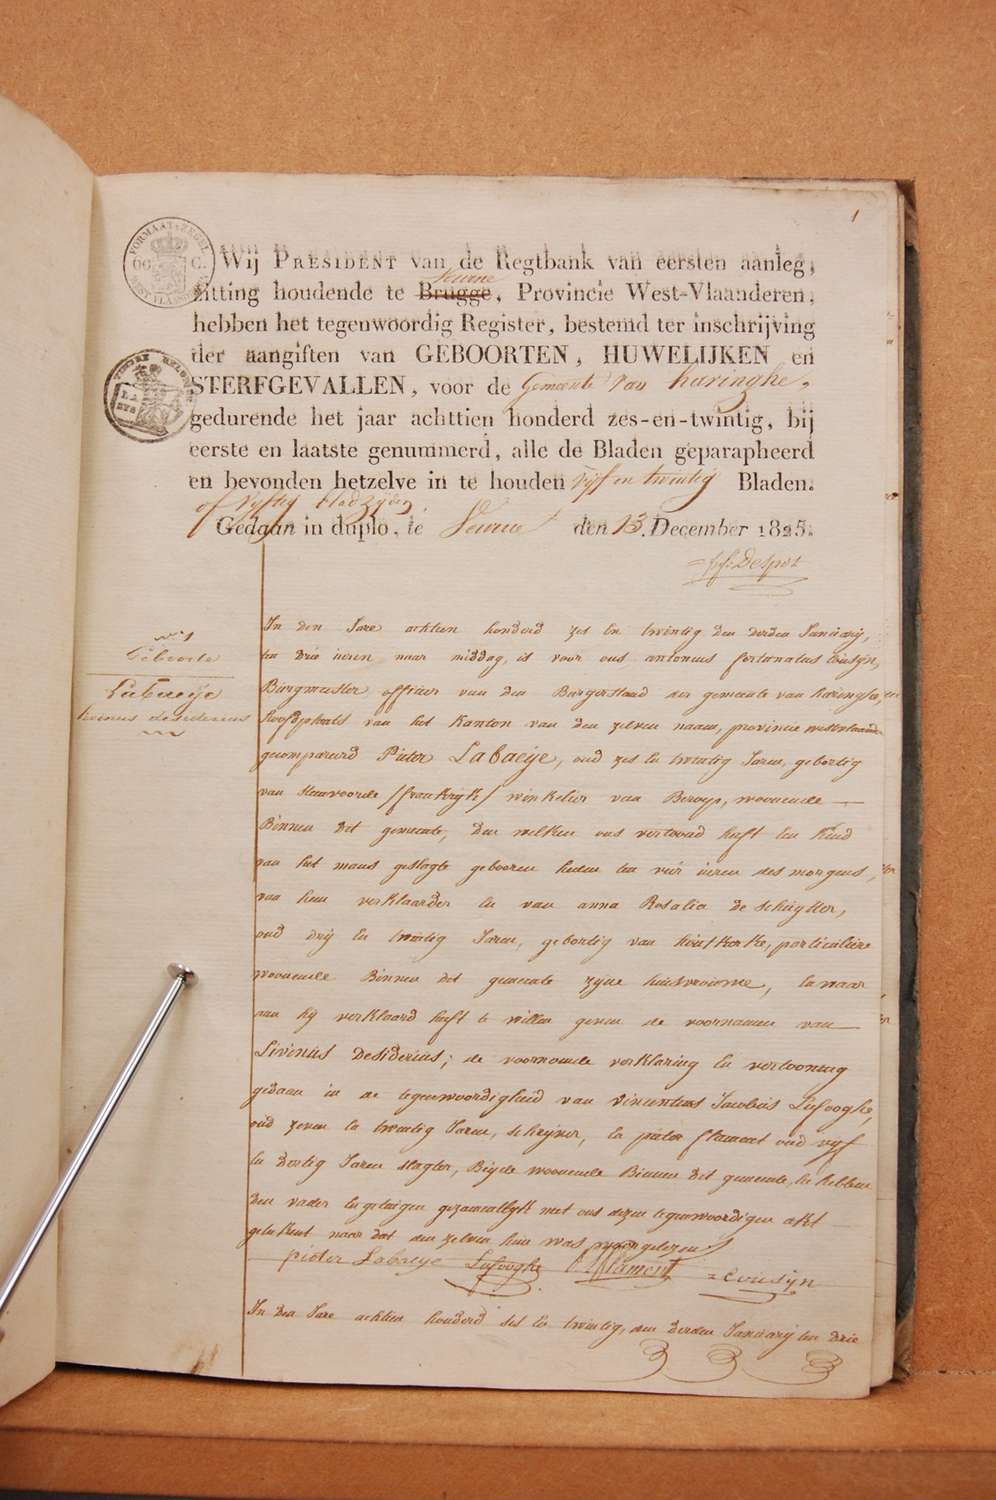 1
VORMAAT-ZEGEL
60 C.
WEST VLAANDEREN
TIMBRE
Wij PRESIDENT van de Regtbank van eersten aanleg,
Veurne
zitting houdende te Brugge, Provincie West-Vlaanderen,
hebben het tegenwoordig Register, bestemd ter inschrijving
der aangiften van GEBOORTEN, HUWELIJKEN en
STERFGEVALLEN, voor de Gemeente van haringhe,
gedurende het jaar achttien honderd zes-en-twintig, bij
eerste en laatste genummerd, alle de Bladen geparapheerd
en bevonden hetzelve in te houden vijf en twintig Bladen.
of vijftig bladzijden
Gedaan in duplo, te Veurne den 13 December 1825.
Despot
n°1
Geboorte
Labaeije
livinus desiderius
In den Jare achtien honderd zes en twintig den derden Januarij,
ten drie uren naar middag, is voor ons antonius fortunatus Cousijn,
Burgmeester officier van den Burgerstand der gemeente van haringhe,
hoofdplaats van het kanton van den zelven naam, provincie westvlaanderen
gecompareerd Pieter Labaeije, oud zes en twintig Jaren, geboortig
van steenvoorde /frankrijk/ winkelier van Beroep, woonende
Binnen dit gemeente, den welken ons vertoond heeft een kind
van het mans geslagte gebooren heden ten vier uren des morgens,
van hem verklaarder en van anna Rosalia De Schuytter,
oud drij en twintig Jaren, geboortig van particuliere
woonende Binnen dit gemeente zijne huisvrouwe, en waar
aan hij verklaard heeft te willen geven de voornamen van
Livinus Desiderius; de voornoemde verklaring en vertooning
gedaan in de tegenwoordigheid van Vincentius Jacobus Lefooghe,
oud zeven en twintig Jaren, schrijver, en pieter flament oud vijf
en dertig Jaren slagter, Beyde woonende Binnen dit gemeente, en hebben
den vader en getuigen gezamentlijk met ons dezen tegenwoordigen akt
geteekent naar dat den zelven hun was voorgelezen
pieter Labaeye Lefooghe P flament Cousijn
In den Jare achtien honderd ses en twintig, den derden Januarij ten drie